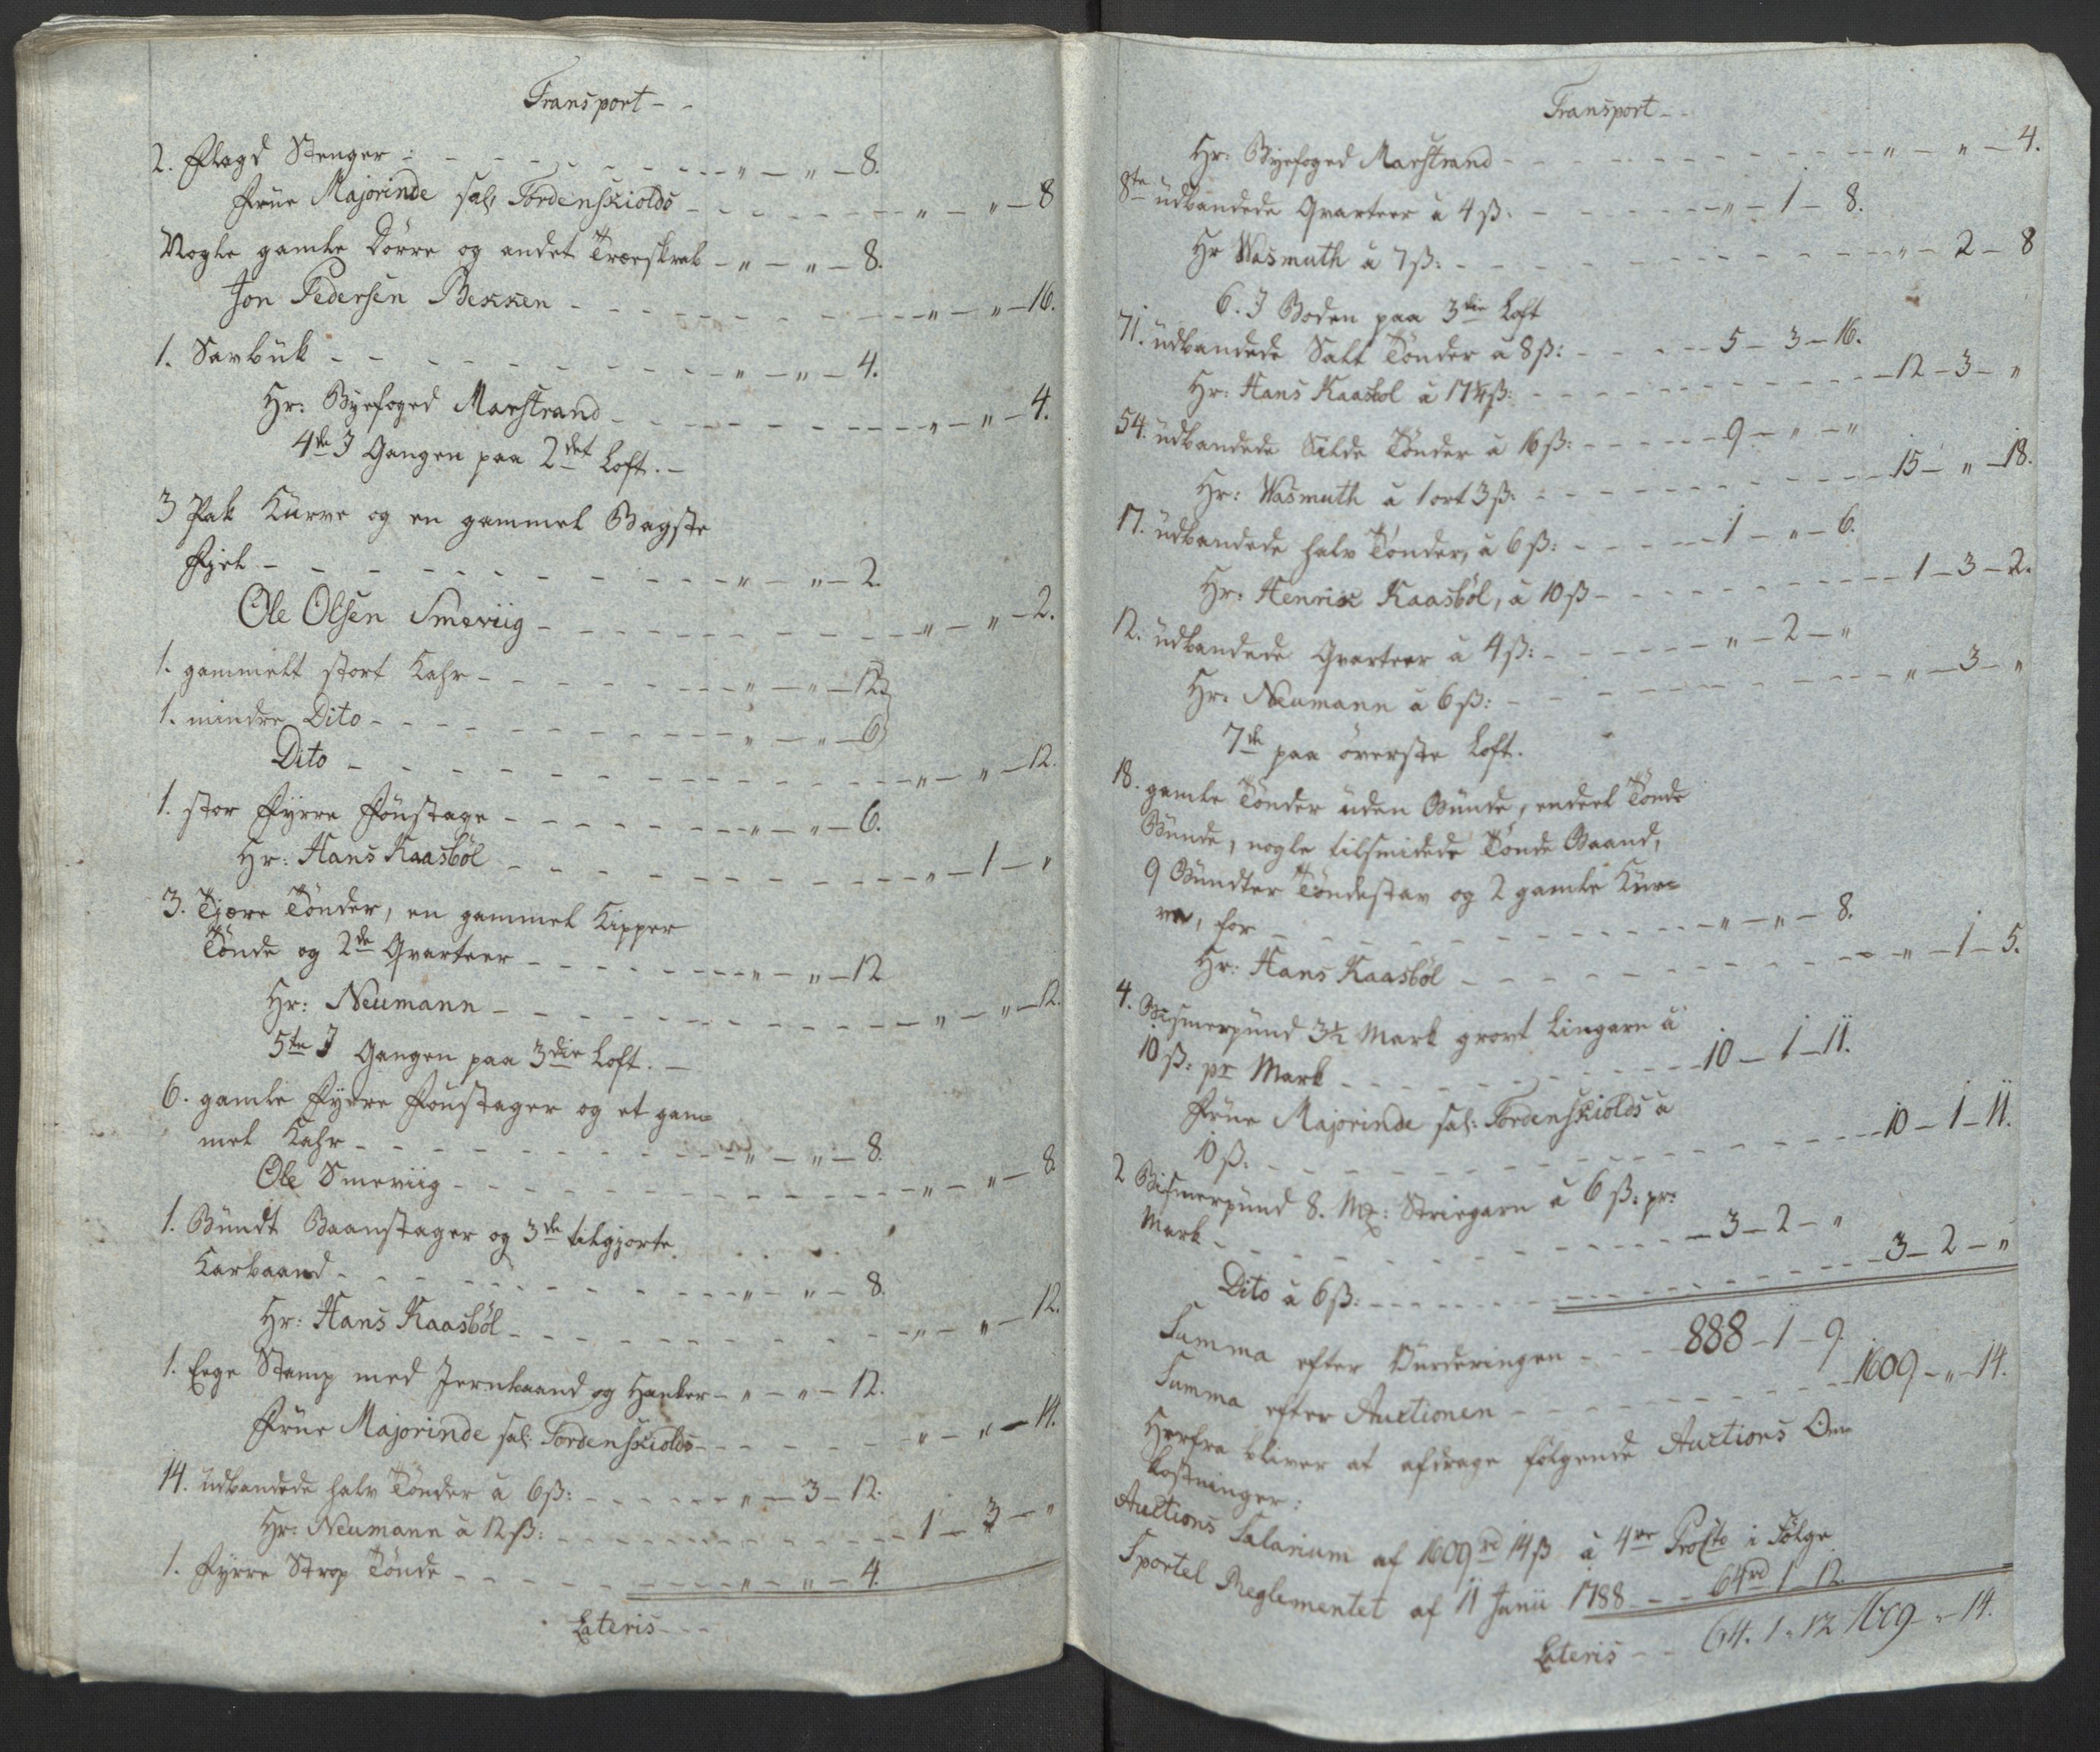 Transport - -
2. Flagd Stenger - - - - „ - „ - 8.
Frue Majorinde sal. Tordenskiolds - - - „ - „ - 8
Nogle gamle Dörre og andet Træskrab - „ - „ - 8.
Jon Pedersen Bekken - - - „ - „ - 16.
1. Savbuk - - - „ - „ - 4.
Hr: Byefoged Marstrand - - - „ - „ - 4.
4de I Gangen paa 2det Loft. -
3 Pak Kurve og en gammel Bagste
Fjel - - - „ - „ - 2.
Ole Olsen Smeviig - - - „ - „ - 2.
1. gammelt stort Kahr - - - „ - „ - 12.
1. mindre Dito - - - „ - „ - 6
Dito - - - „ - „ - 12.
1. stor Fyrre Foustage - - - „ - „ - 6.
Hr: Hans Kaasböl - - - „ - 1 - „
3. Tjære Tönder, en gammel Kipper
Tönde og 2de Qvarteer - - - „ - „ - 12
Hr: Neumann - - - „ - „ - 12.
5te I Gangen paa 3die Loft. -
6. gamle Fyrre Foustager og et gam=
mel Kahr - - - „ - „ - 8.
Ole Smeviig - - - „ - „ - 8.
1. Bundt Baanstager og 3de tilgjorte
Karbaand - - - „ - „ - 8.
Hr: Hans Kaasböl - - - „ - „ - 12.
1. Eege Stamp med Jernbaand og Hanker - „ - „ - 12.
Frue Majorinde sal: Tordenskiolds - - - „ - „ - 14.
14. udbandede halv Tönder à 6 ß: - - - „ - 3 - 12.
Hr: Neumann à 12 ß: - - - 1 - 3 - „
1. Fyrre Strop Tönde - - - „ - „ - 4.
Lateris - - -
Transport - -
Hr: Byefoged Marstrand - - - „ - „ - 4.
8te udbandede Qvarteer à 4 ß: - - - „ - 1 - 8.
Hr Wasmuth à 7 ß: - - - „ - 2 - 8
6. I Boden paa 3die Loft
71. udbandede Salt Tönder à 8 ß: - - - 5 - 3 - 16.
Hr: Hans Kaasbol à 17¼ ß: - - - 12 - 3 - „
54. udbandede Silde Tönder à 16 ß: - - - 9 - „ - „
Hr: Wasmuth à 1 ort 3 ß: - - - 15 - „ - 18.
17. udbandede halv Tönder, à 6 ß: - - - 1 - „ - 6.
Hr: Henrik Kaasböl, à 10 ß - - - 1 - 3 - 2.
12. udbandede Qvarteer à 4 ß: - - - „ - 2 - „
Hr: Neumann à 6 ß: - - - „ - 3 - „
7de paa överste Loft.
18. gamle Tönder uden Bunde, endeel Tönde
Bunde, nogle tilsmidede Tönde Baand,
9 Bundter Töndestav og 2 gamle Kur=
ve, for - - - „ - „ - 8.
Hr: Hans Kaasböl - - - „ - 1 - 5.
4. Bismerpund 3½ Mark grovt Lingarn à
10 ß: pr Mark - - - 10 - 1 - 11.
Frue Majorinde sal: Tordenskiolds à
10 ß. - - - 10 - 1 - 11.
2 Bismerpund 8. Mk: Striegarn à 6 ß: pr:
Mark - - - 3 - 2 - „
Dito à 6 ß: - - - 3 - 2 - „
Summa efter Vurderingen - - - 888 - 1 - 9
Summa efter Auctionen - - - 1609 - „ - 14.
Herfra bliver at afdrage fölgende Auctions Om=
kostninger:
Auctions Salarium af 1609 rd 14 ß à 4re ProCto i Fölge
Sportel Reglementet af 11 Junii 1788 - - 64 rd 1 - 12.
Lateris - - 64. 1. 12 1609 - „ - 14.